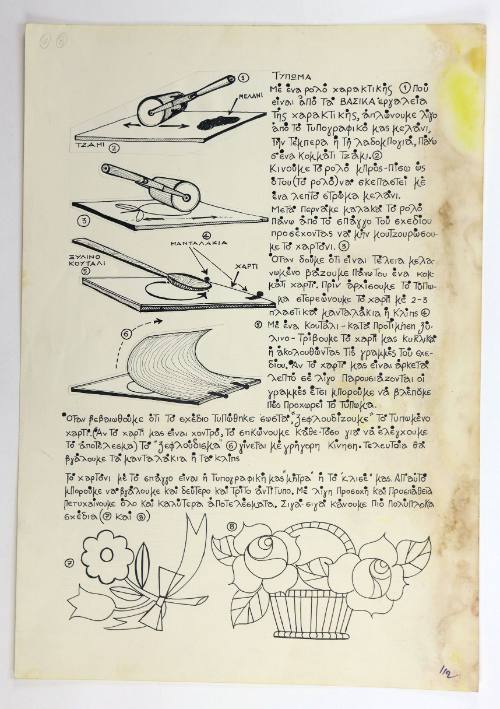 ΤΥΠΩΜΑ
Με ένα ρολό χαρακτικής ① που
είναι από τα ΒΑΣΙΚΑ εργαλεία
της χαρακτικής, απλώνουμε λίγο
από το τυπογραφικό μας μελάνι,
την τέμπερα ή τη λαδομπογιά, πάνω
σ' ένα κομμάτι τζάμι. ②
Κινούμε το ρολό μπρος-πίσω ως
ότου (το ρολό) να σκεπαστεί με
ένα λεπτό στρώμα μελάνι.
Μετά περνάμε μαλακά το ρολό
πάνω από το επάγγο του σχεδίου
προσέχοντας να μην μουτζουρώσου-
με το χαρτόνι. ③
Όταν δούμε ότι είναι τέλεια μελα-
νωμένο βάζουμε πάνω του ένα κομ-
μάτι χαρτί. Πριν αρχίσουμε το τύπω-
μα στερεώνουμε το χαρτί με 2-3
πλαστικά μανταλάκια ή κλίπς ④
Με ένα κουτάλι-κατά προτίμηση ξύ-
λινο-τρίβουμε το χαρτί μας κυκλικά
ή ακολουθώντας τις γραμμές του σχε-
δίου. Αν το χαρτί μας είναι αρκετά
λεπτό σε λίγο παρουσιάζονται οι
γραμμές έτσι μπορούμε να βλέπουμε
πώς προχωρεί το τύπωμα.
Όταν βεβαιωθούμε ότι το σχέδιο τυπώθηκε σωστά, "ξεφλουδίζουμε" το τυπωμένο
χαρτί. (Αν το χαρτί μας είναι χοντρό, το σηκώνουμε κάθε-τόσο για να ελέγχουμε
το αποτέλεσμα) Το "ξεφλούδισμα" ⑥ γίνεται με γρήγορη κίνηση. Τελευταία θα
βγάλουμε τα μανταλάκια ή τα κλίπς
Το χαρτόνι με το επάγγο είναι η τυπογραφική μας "μήτρα" ή το "κλισέ" μας. Απ' αυτό
μπορούμε να βγάλουμε και δεύτερο και τρίτο αντίτυπο. Με λίγη προσοχή και προσπάθεια
πετυχαίνουμε όλο και καλύτερα αποτελέσματα. Σιγά σιγά κάνουμε πιο πολύπλοκα
σχέδια (⑦ και ⑧)
①
ΜΕΛΑΝΙ
ΤΖΑΜΙ ②
③
④
ΜΑΝΤΑΛΑΚΙΑ
ΧΑΡΤΙ
ΞΥΛΙΝΟ
ΚΟΥΤΑΛΙ
⑤
⑥
⑦
⑧
112